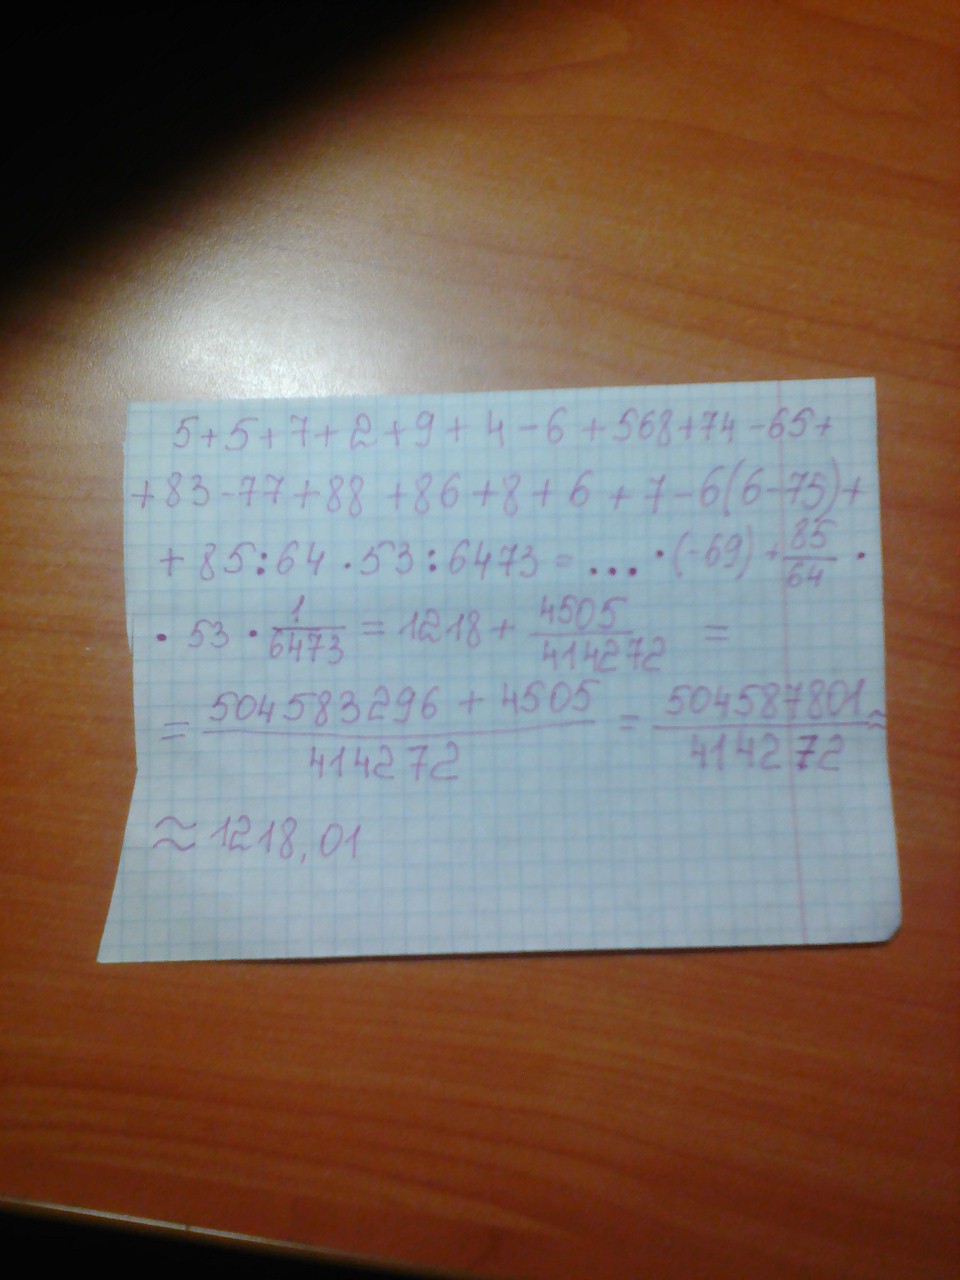 5+5+7+2+9+4-6+568+74-65+
+83-77+88+86+8+6+7-6(6-75)+
+85:64·53:6473=...·(-69)+85/64·
·53·1/6473=1218+4505/414272=
=504583296+4505/414272=504587801/414272≈
≈1218,01